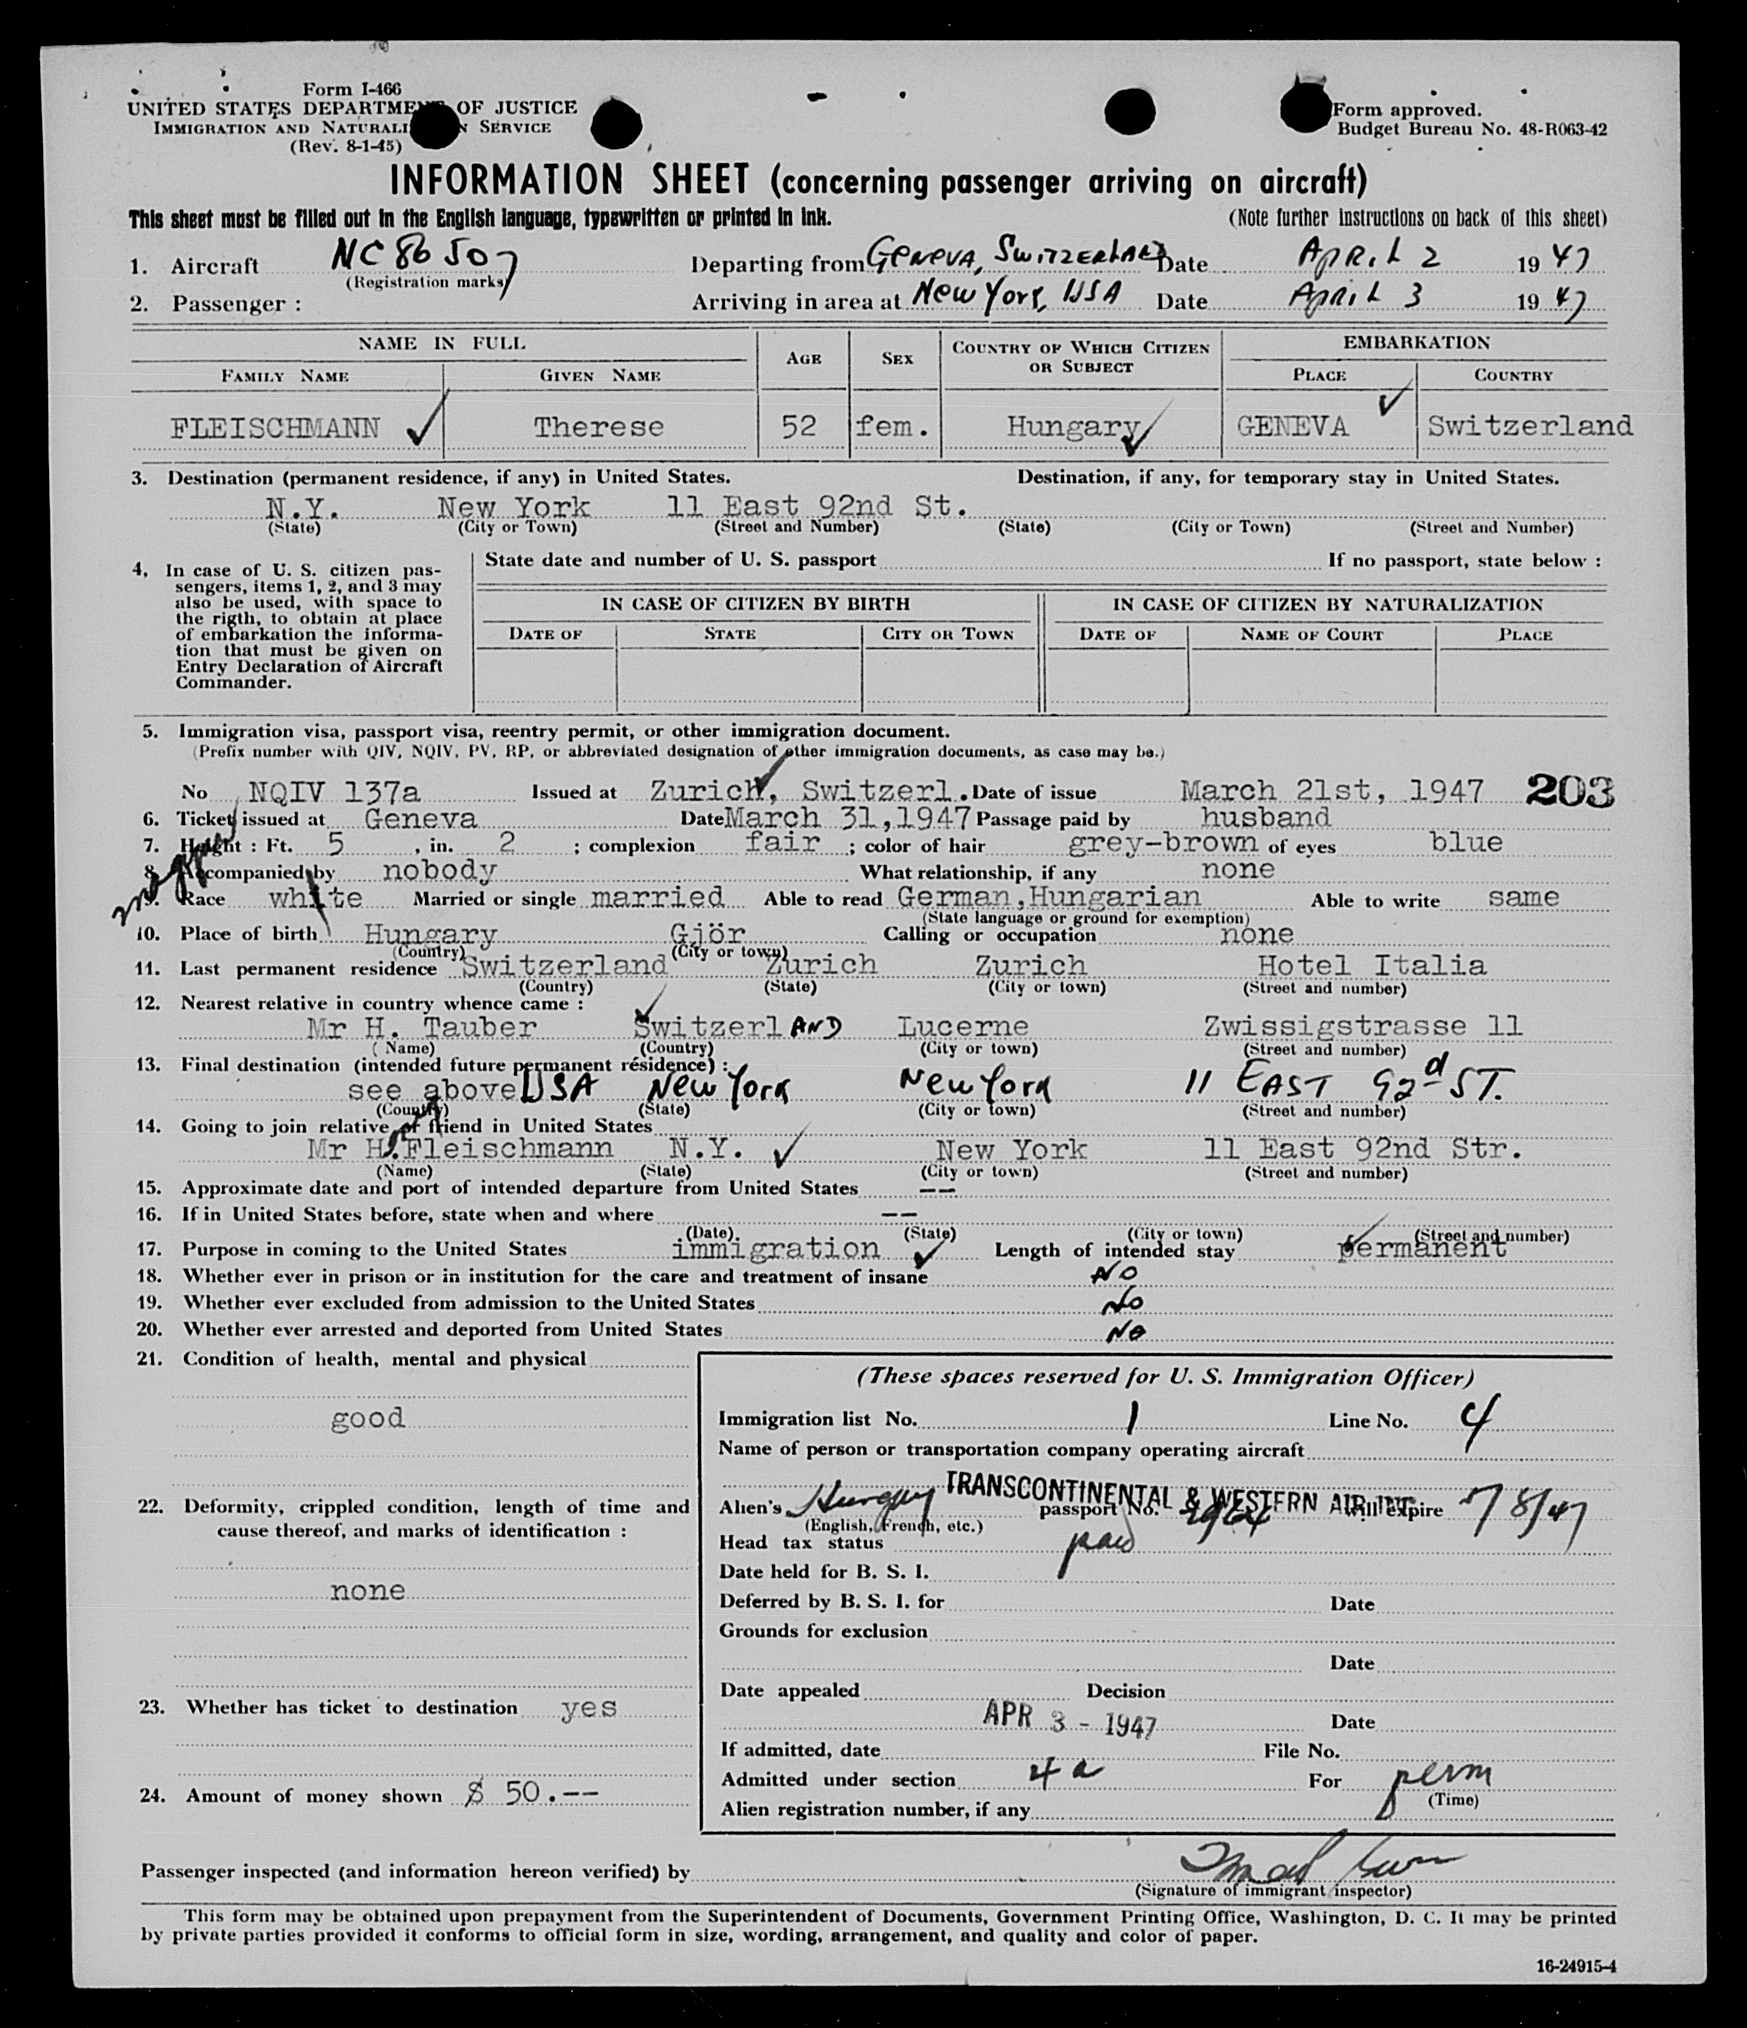 Form I-466
UNITED STATES DEPARTMENT OF JUSTICE
IMMIGRATION AND NATURALI N SERVICE
(Rev. 8-1-45)
Form approved.
Budget Bureau No. 48-R063-42
INFORMATION SHEET (concerning passenger arriving on aircraft)
This sheet must be filled out in the English language, typewritten or printed in ink. (Note further instructions on back of this sheet)
1. Aircraft NC 86507 Departing from GENEVA, SWITZERLAND Date APRIL 2 1947
(Registration marks)
2. Passenger : Arriving in area at New York, USA Date APRIL 3 1947
NAME IN FULL AGE SEX COUNTRY OF WHICH CITIZEN OR SUBJECT EMBARKATION
FAMILY NAME GIVEN NAME PLACE COUNTRY
FLEISCHMANN Therese 52 fem. Hungary GENEVA Switzerland
3. Destination (permanent residence, if any) in United States. Destination, if any, for temporary stay in United States.
N.Y. New York 11 East 92nd St.
(State) (City or Town) (Street and Number) (State) (City or Town) (Street and Number)
4, In case of U. S. citizen pas-
sengers, items 1, 2, and 3 may
also be used, with space to
the rigth, to obtain at place
of embarkation the informa-
tion that must be given on
Entry Declaration of Aircraft
Commander.
State date and number of U. S. passport If no passport, state below :
IN CASE OF CITIZEN BY BIRTH IN CASE OF CITIZEN BY NATURALIZATION
DATE OF STATE CITY OR TOWN DATE OF NAME OF COURT PLACE
5. Immigration visa, passport visa, reentry permit, or other immigration document.
(Prefix number with QIV, NQIV, PV, RP, or abbreviated designation of other immigration documents, as case may be.)
No NQIV 137a Issued at Zurich, Switzerl. Date of issue March 21st, 1947 203
6. Ticket issued at Geneva Date March 31,1947 Passage paid by husband
7. Height : Ft. 5 , in. 2 ; complexion fair ; color of hair grey-brown of eyes blue
8. Accompanied by nobody What relationship, if any none
9. Race white Married or single married Able to read German,Hungarian Able to write same
(State language or ground for exemption)
10. Place of birth Hungary Gjör Calling or occupation none
(Country) (City or town)
11. Last permanent residence Switzerland Zurich Zurich Hotel Italia
(Country) (State) (City or town) (Street and number)
12. Nearest relative in country whence came :
Mr H. Tauber Switzerl AND Lucerne Zwissigstrasse 11
(Name) (Country) (City or town) (Street and number)
13. Final destination (intended future permanent résidence) :
see above USA New York New York 11 EAST 92d ST.
(Country) (State) (City or town) (Street and number)
14. Going to join relative or friend in United States
Mr H.Fleischmann N.Y. New York 11 East 92nd Str.
(Name) (State) (City or town) (Street and number)
15. Approximate date and port of intended departure from United States --
16. If in United States before, state when and where --
(Date) (State) (City or town) (Street and number)
17. Purpose in coming to the United States immigration Length of intended stay permanent
18. Whether ever in prison or in institution for the care and treatment of insane NO
19. Whether ever excluded from admission to the United States No
20. Whether ever arrested and deported from United States No
21. Condition of health, mental and physical
good
22. Deformity, crippled condition, length of time and
cause thereof, and marks of identification :
none
23. Whether has ticket to destination yes
24. Amount of money shown $ 50.--
(These spaces reserved for U. S. Immigration Officer)
Immigration list No. 1 Line No. 4
Name of person or transportation company operating aircraft
TRANSCONTINENTAL & WESTERN AIR INC.
Alien's Hungary passport No. Will expire 7/8/47
(English, French, etc.)
Head tax status paid
Date held for B. S. I.
Deferred by B. S. I. for Date
Grounds for exclusion
Date
Date appealed Decision
APR 3 - 1947 Date
If admitted, date File No.
Admitted under section 4a For perm
(Time)
Alien registration number, if any
Passenger inspected (and information hereon verified) by
(Signature of immigrant inspector)
This form may be obtained upon prepayment from the Superintendent of Documents, Government Printing Office, Washington, D. C. It may be printed
by private parties provided it conforms to official form in size, wording, arrangement, and quality and color of paper.
16-24915-4